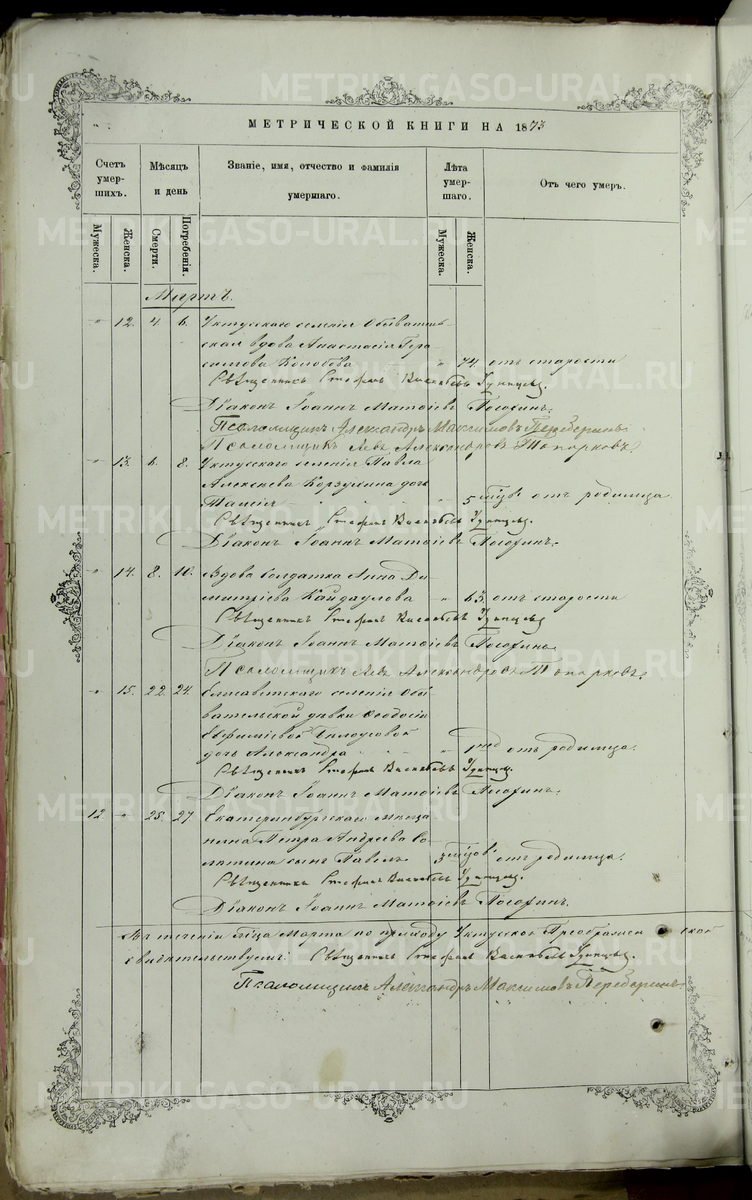 METRIKI.GASO-URAL.RU
МЕТРИЧЕСКОЙ КНИГИ НА 1873
Счетъ умер- шихъ.
Мѣсяцъ и день
Званіе, имя, отчество и фамилія умершаго.
Лѣта умер- шаго.
Отъ чего умеръ.
Мужеска.
Женска.
Смерти.
Погребенія.
Мужеска.
Женска.
Мартъ.
" 12. 4. 6. Уктусскаго селенія Обыватель-
ская вдова Анастасія Гера-
симова Колобова " 74. отъ старости
Священникъ Стефанъ Удинцевъ.
Діаконъ Іоаннъ Матѳіевъ
Псаломщикъ Александръ Максимовъ Переберинъ
Псаломщикъ Левъ Александровъ Топорковъ.
" 13. 6. 8. Уктусскаго селенія Павла
Алексѣева Корзухина дочь
Таисія " 5 отъ родимца
Священникъ Стефанъ Удинцевъ.
Діаконъ Іоаннъ Матѳіевъ
" 14. 8. 10. Вдова солдатка Анна Ди-
митріева Кайдаулова " 63. отъ старости
Священникъ Стефанъ Удинцевъ
Діаконъ Іоаннъ Матѳіевъ
Псаломщикъ Левъ Александровъ Топорковъ.
" 15. 22. 24. Елисаветскаго селенія Обы-
вательской дѣвки Ѳеодосіи
Евфиміевой
дочь Александра " 1 нед отъ родимца.
Священникъ Стефанъ Удинцевъ.
Діаконъ Іоаннъ Матѳіевъ
12 " 25. 27. Екатеринбургскаго мѣща-
нина Петра Андреева
сынъ Павелъ 3 отъ родимца.
Священникъ Стефанъ Удинцевъ.
Діаконъ Іоаннъ Матѳіевъ
Въ теченіи Марта по приходу
свидѣтельствуемъ: Священникъ Стефанъ Удинцевъ.
Псаломщикъ Александръ Максимовъ Переберинъ